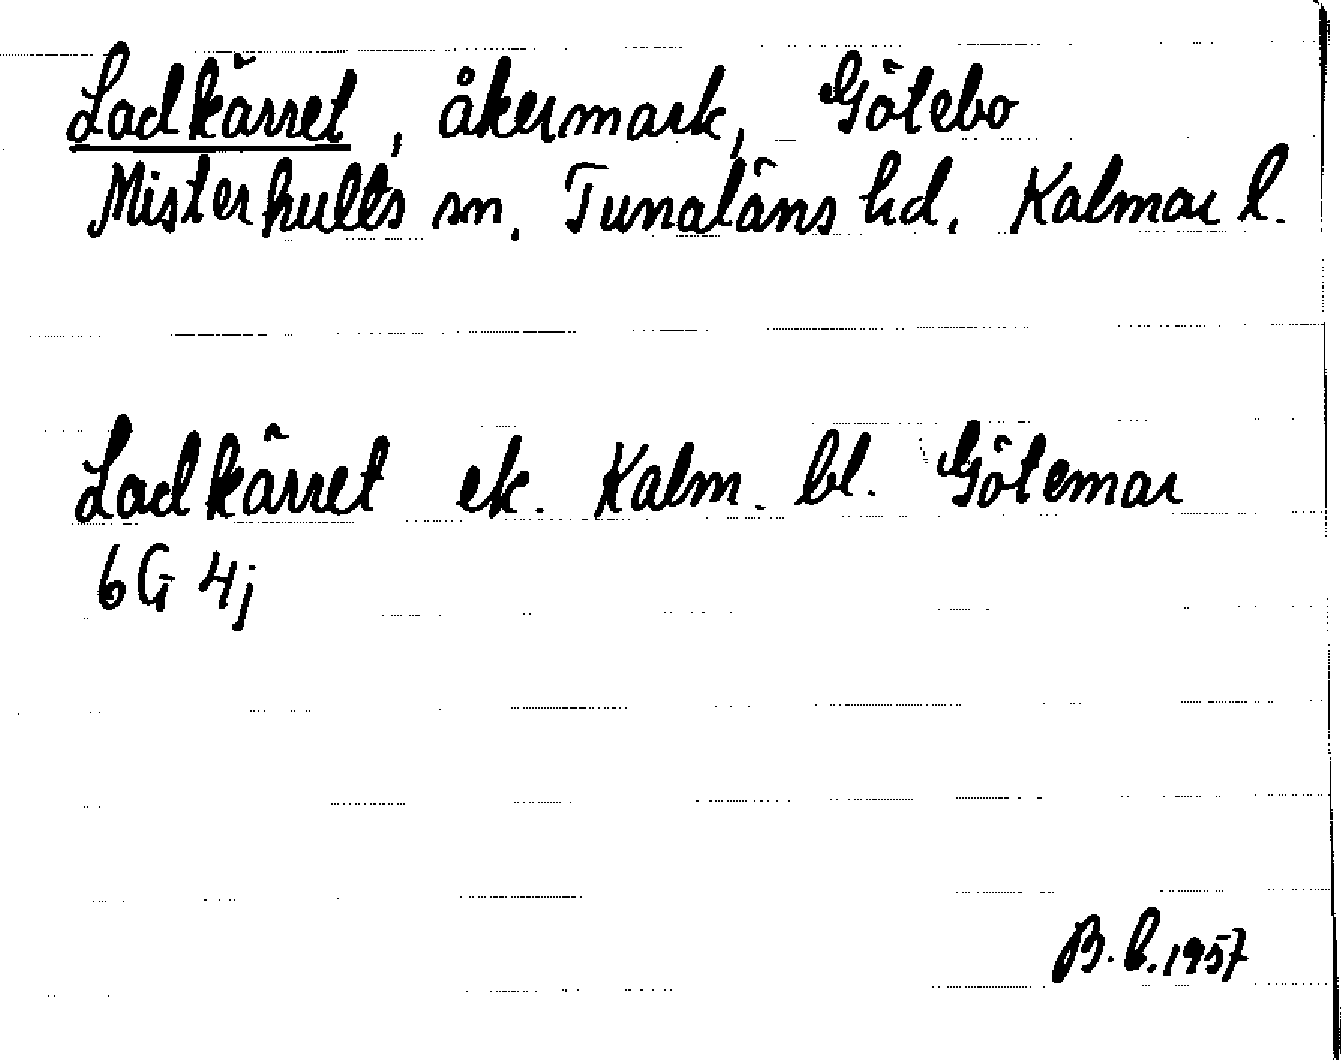 Ladkärret, åkermark, Götebo
Misterhults sn. Tunaläns hd. Kalmar l.
Ladkärret ek. Kalm. bl. Götemar
6G 4j
B.b. 1957